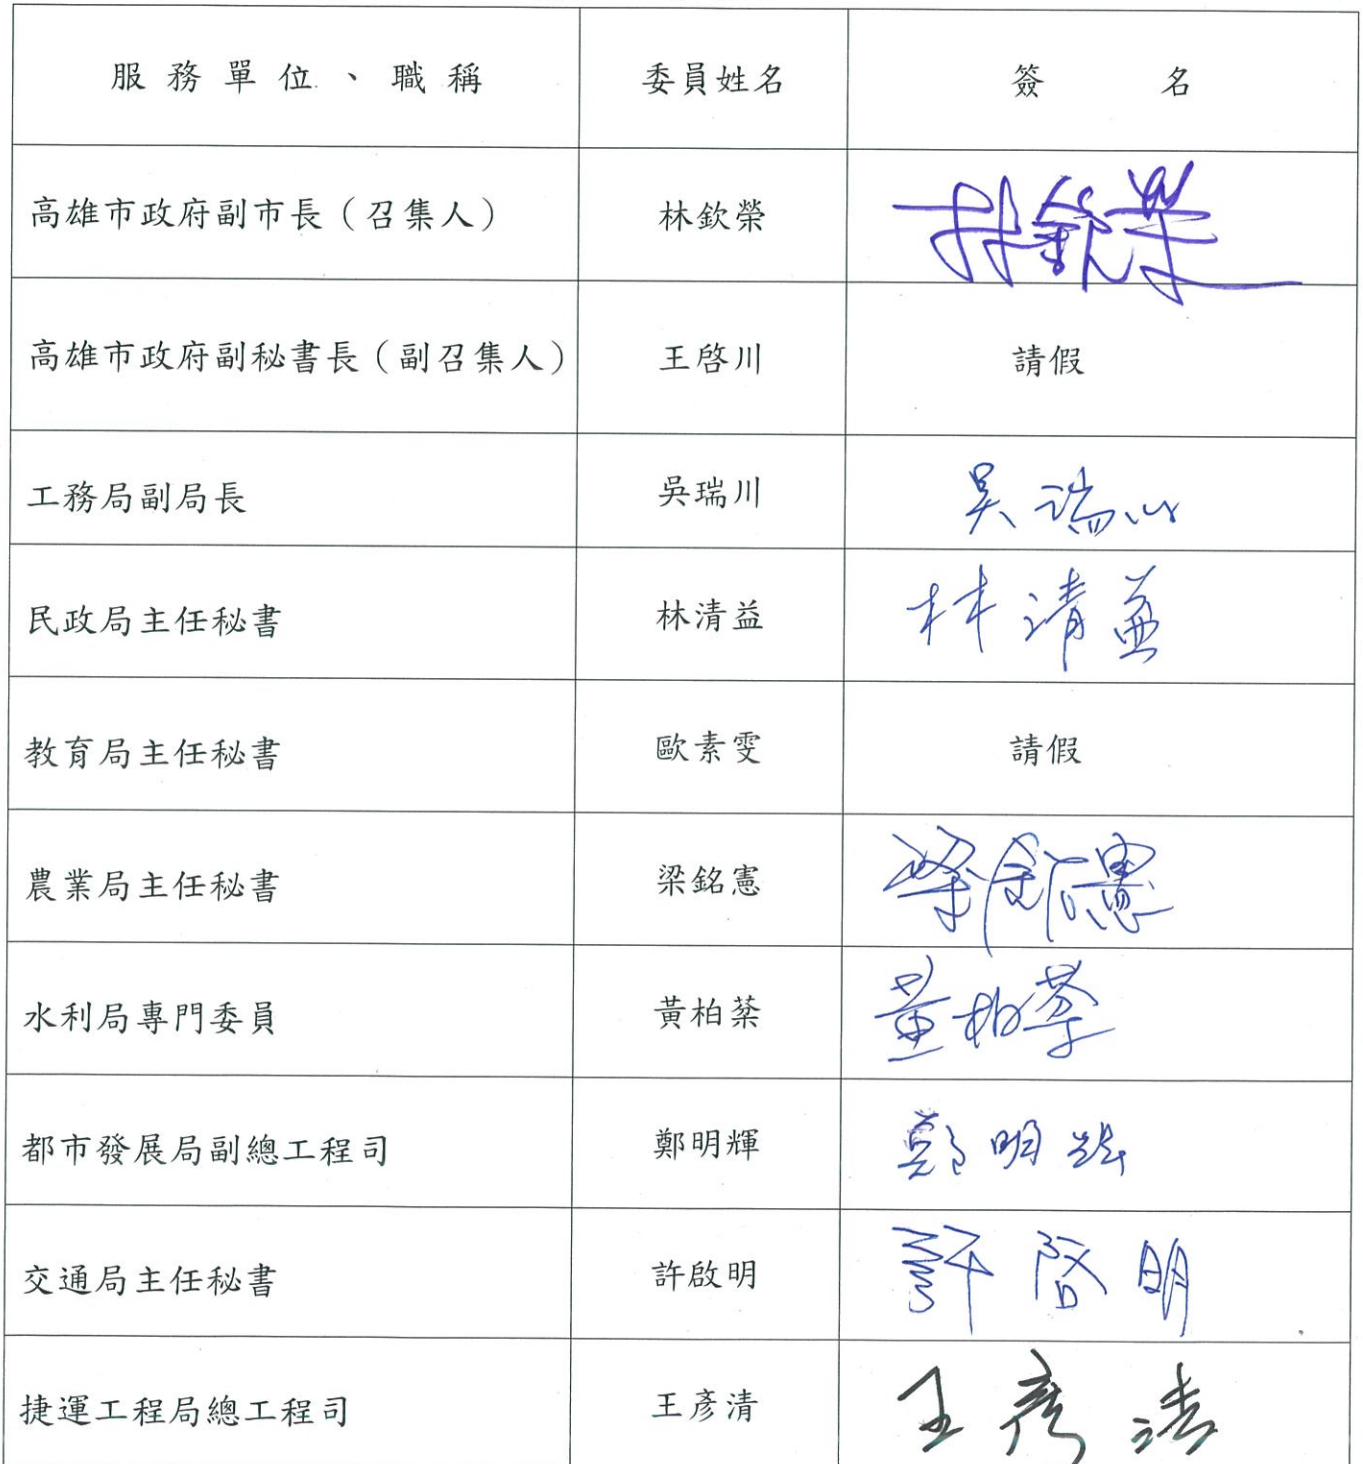 服務單位、職稱 委員姓名 簽名
高雄市政府副市長（召集人） 林欽榮 林欽榮
高雄市政府副秘書長（副召集人） 王啓川 請假
工務局副局長 吳瑞川 吳瑞川
民政局主任秘書 林清益 林清益
教育局主任秘書 歐素雯 請假
農業局主任秘書 梁銘憲 梁銘憲
水利局專門委員 黃柏棻 黃柏棻
都市發展局副總工程司 鄭明輝 鄭明輝
交通局主任秘書 許啟明 許啓明
捷運工程局總工程司 王彥清 王彥清